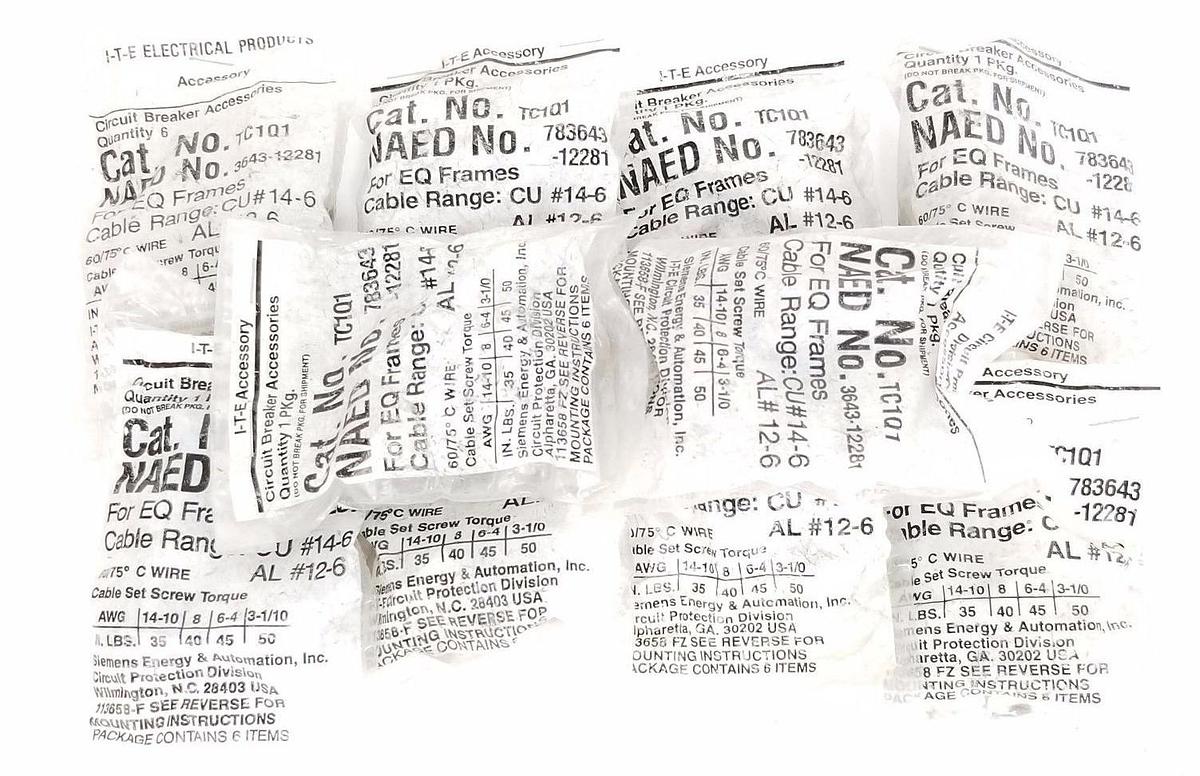 I-T-E ELECTRICAL PRODUCTS
Accessory
Circuit Breaker Accessories
Quantity 6
Cat. No. TC1Q1
No. 3643-12281
For EQ Frames
Cable Range: CU#14-6
AL
60/75° C WIRE
I-T-E Accessory
Accessories
1 PKg.
Cat. No. TC1Q1
NAED No. 783643
-12281
For EQ Frames
Cable Range: CU #14-6
AL #12-6
/75° C WIRE
I-T-E Accessory
it Breaker Accessories
at. No. TC1Q1
NAED No. 783643
-12281
or EQ Frames
Cable Range: CU #14-6
AL #12-6
Breaker Accessories
Quantity 1 PKg.
(DO NOT BREAK PKG. FOR SHIPMENT)
Cat. No. TC1Q1
NAED No. 783643
-1228
For EQ Frames
Cable Range: CU #14-6
60/75° C WIRE AL #12-6
Set Screw
3-1/0
50
mation, inc.
ion
USA
RSE FOR
CTIONS
INS 6 ITEMS
I-T-E Accessory
Circuit Breaker Accessories
Quantity 1 PKg.
(DO NOT BREAK PKG. FOR SHIPMENT)
Cat. No. TC1Q1
NAED No. 783643
-12281
For EQ Frames
Cable Range: #14-
60/75° C WIRE AL #12-6
Cable Set Screw Torque
AWG 14-10 8 6-4 3-1/0
IN. LBS. 35 40 45 50
Siemens Energy & Automation, Inc.
Circuit Protection Division
Alpharetta, GA. 30202 USA
113658 FZ SEE REVERSE FOR
MOUNTING INSTRUCTIONS
PACKAGE CONTAINS 6 ITEMS
Quntity 1 PKg.
Cat. No. TC1Q1
NAED No. 3643-12281
For EQ Frames
Cable Range: CU#14-6
60/75° C WIRE AL# 12-6
Cable Set Screw Torque
AWG 14-10 8 6-4 3-1/0
IN. LBS. 35 40 45 50
Siemens Energy & Automation, Inc.
I-T-E Circuit Protection Division
Wilmington, N.C.
113658-F SEE
I-T-
cuit Brea
Quantity 1
(DO NOT BREAK PKG.
Cat.
NAED
For EQ Fra
Cable Rang CU #14-6
/75° C WIRE AL #12-6
Cable Set Screw Torque
AWG 14-10 8 6-4 3-1/10
N. LBS. 35 40 45 50
Siemens Energy & Automation, Inc.
Circuit Protection Division
Wilmington, N.C. 28403 USA
113658-F SEE REVERSE FOR
MOUNTING INSTRUCTIONS
PACKAGE CONTAINS 6 ITEMS
/75° C WIRE AL
ble Set Screw Torque
WG 14-10 8 6-4 3-1/0
LBS. 35 40 45 50
mens Energy & Automation, Inc.
Circuit Protection Division
mington, N.C. 28403 USA
3658-F SEE REVERSE FOR
OUNTING INSTRUCTIONS
ACKAGE CONTAINS
ange: CU
/75° C WIRE AL #12-6
ble Set Screw Torque
AWG 14-10 8 6-4 3-1/0
N. LBS. 35 40 45 50
emens Energy & Automation, Inc.
rcuit Protection Division
lpharetta, GA. 30202 USA
3658 FZ SEE REVERSE FOR
OUNTING INSTRUCTIONS
ACKAGE CONTAINS 6 ITEMS
Accessory
er Accessories
TC1Q1
783643
-12281
or EQ Frame
ble Range: C
5° C WIRE AL #12
le Set Screw Torque
AWG 14-10 8 6-4 3-1/0
LBS. 35 40 45 50
mens Energy & Automation, Inc.
uit Protection Division
aretta, GA. 30202 USA
58 FZ SEE REVERSE FOR
NTING INSTRUCTIONS
AGE CONTAINS 6 ITEMS